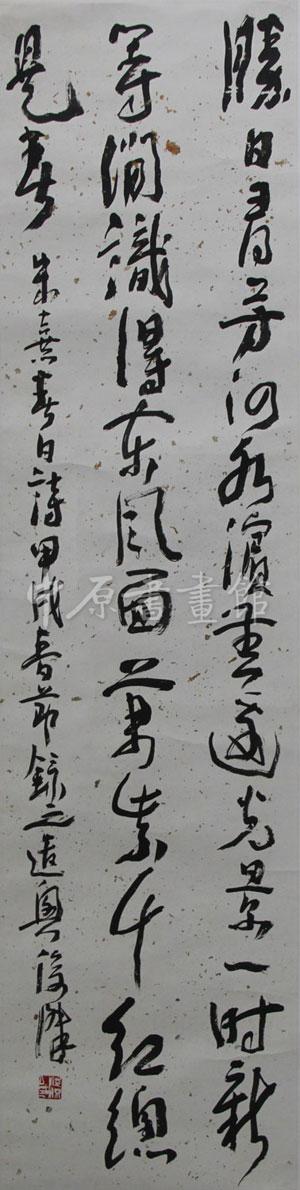 勝日尋芳泗水濱無邊光景一時新
等閒識得東風面萬紫千紅總
是春 朱熹春日詩甲戌春節錄之遣興
中原書畫館